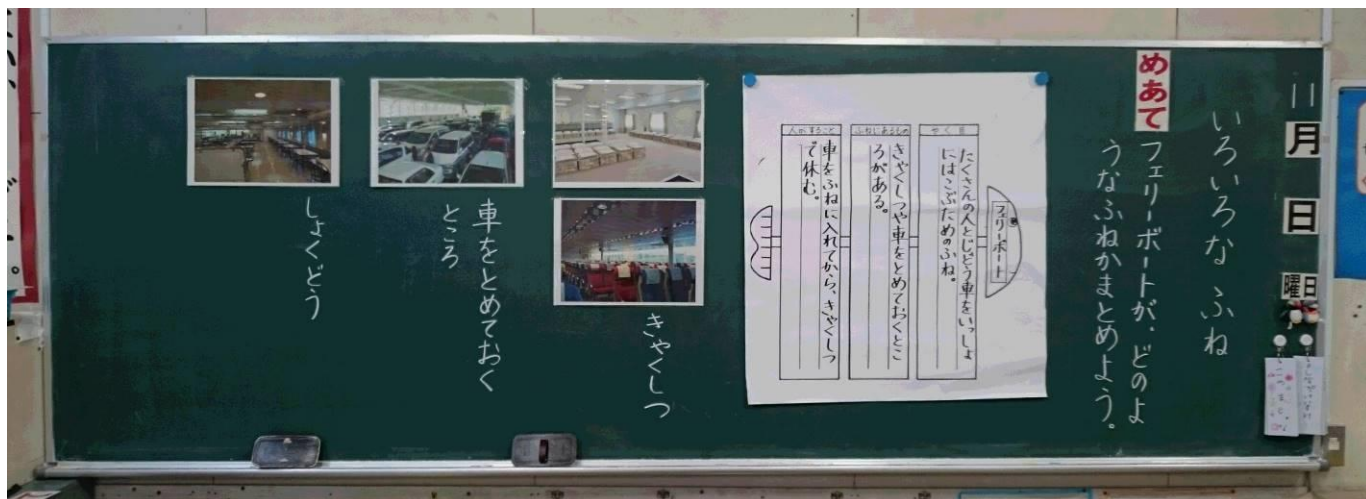 11月 日 曜日
いろいろな ふね
めあて
フェリーボートが、どのよ
うなふねかまとめよう。
フェリーボート
やく目
たくさんの人とじどう車をいっしょ
にはこぶためのふね。
ふねにあるもの
きゃくしつや車をとめておくとこ
ろがある。
人がすること
車をふねに入れてから、きゃくしつ
で休む。
きゃくしつ
車をとめておく
ところ
しょくどう